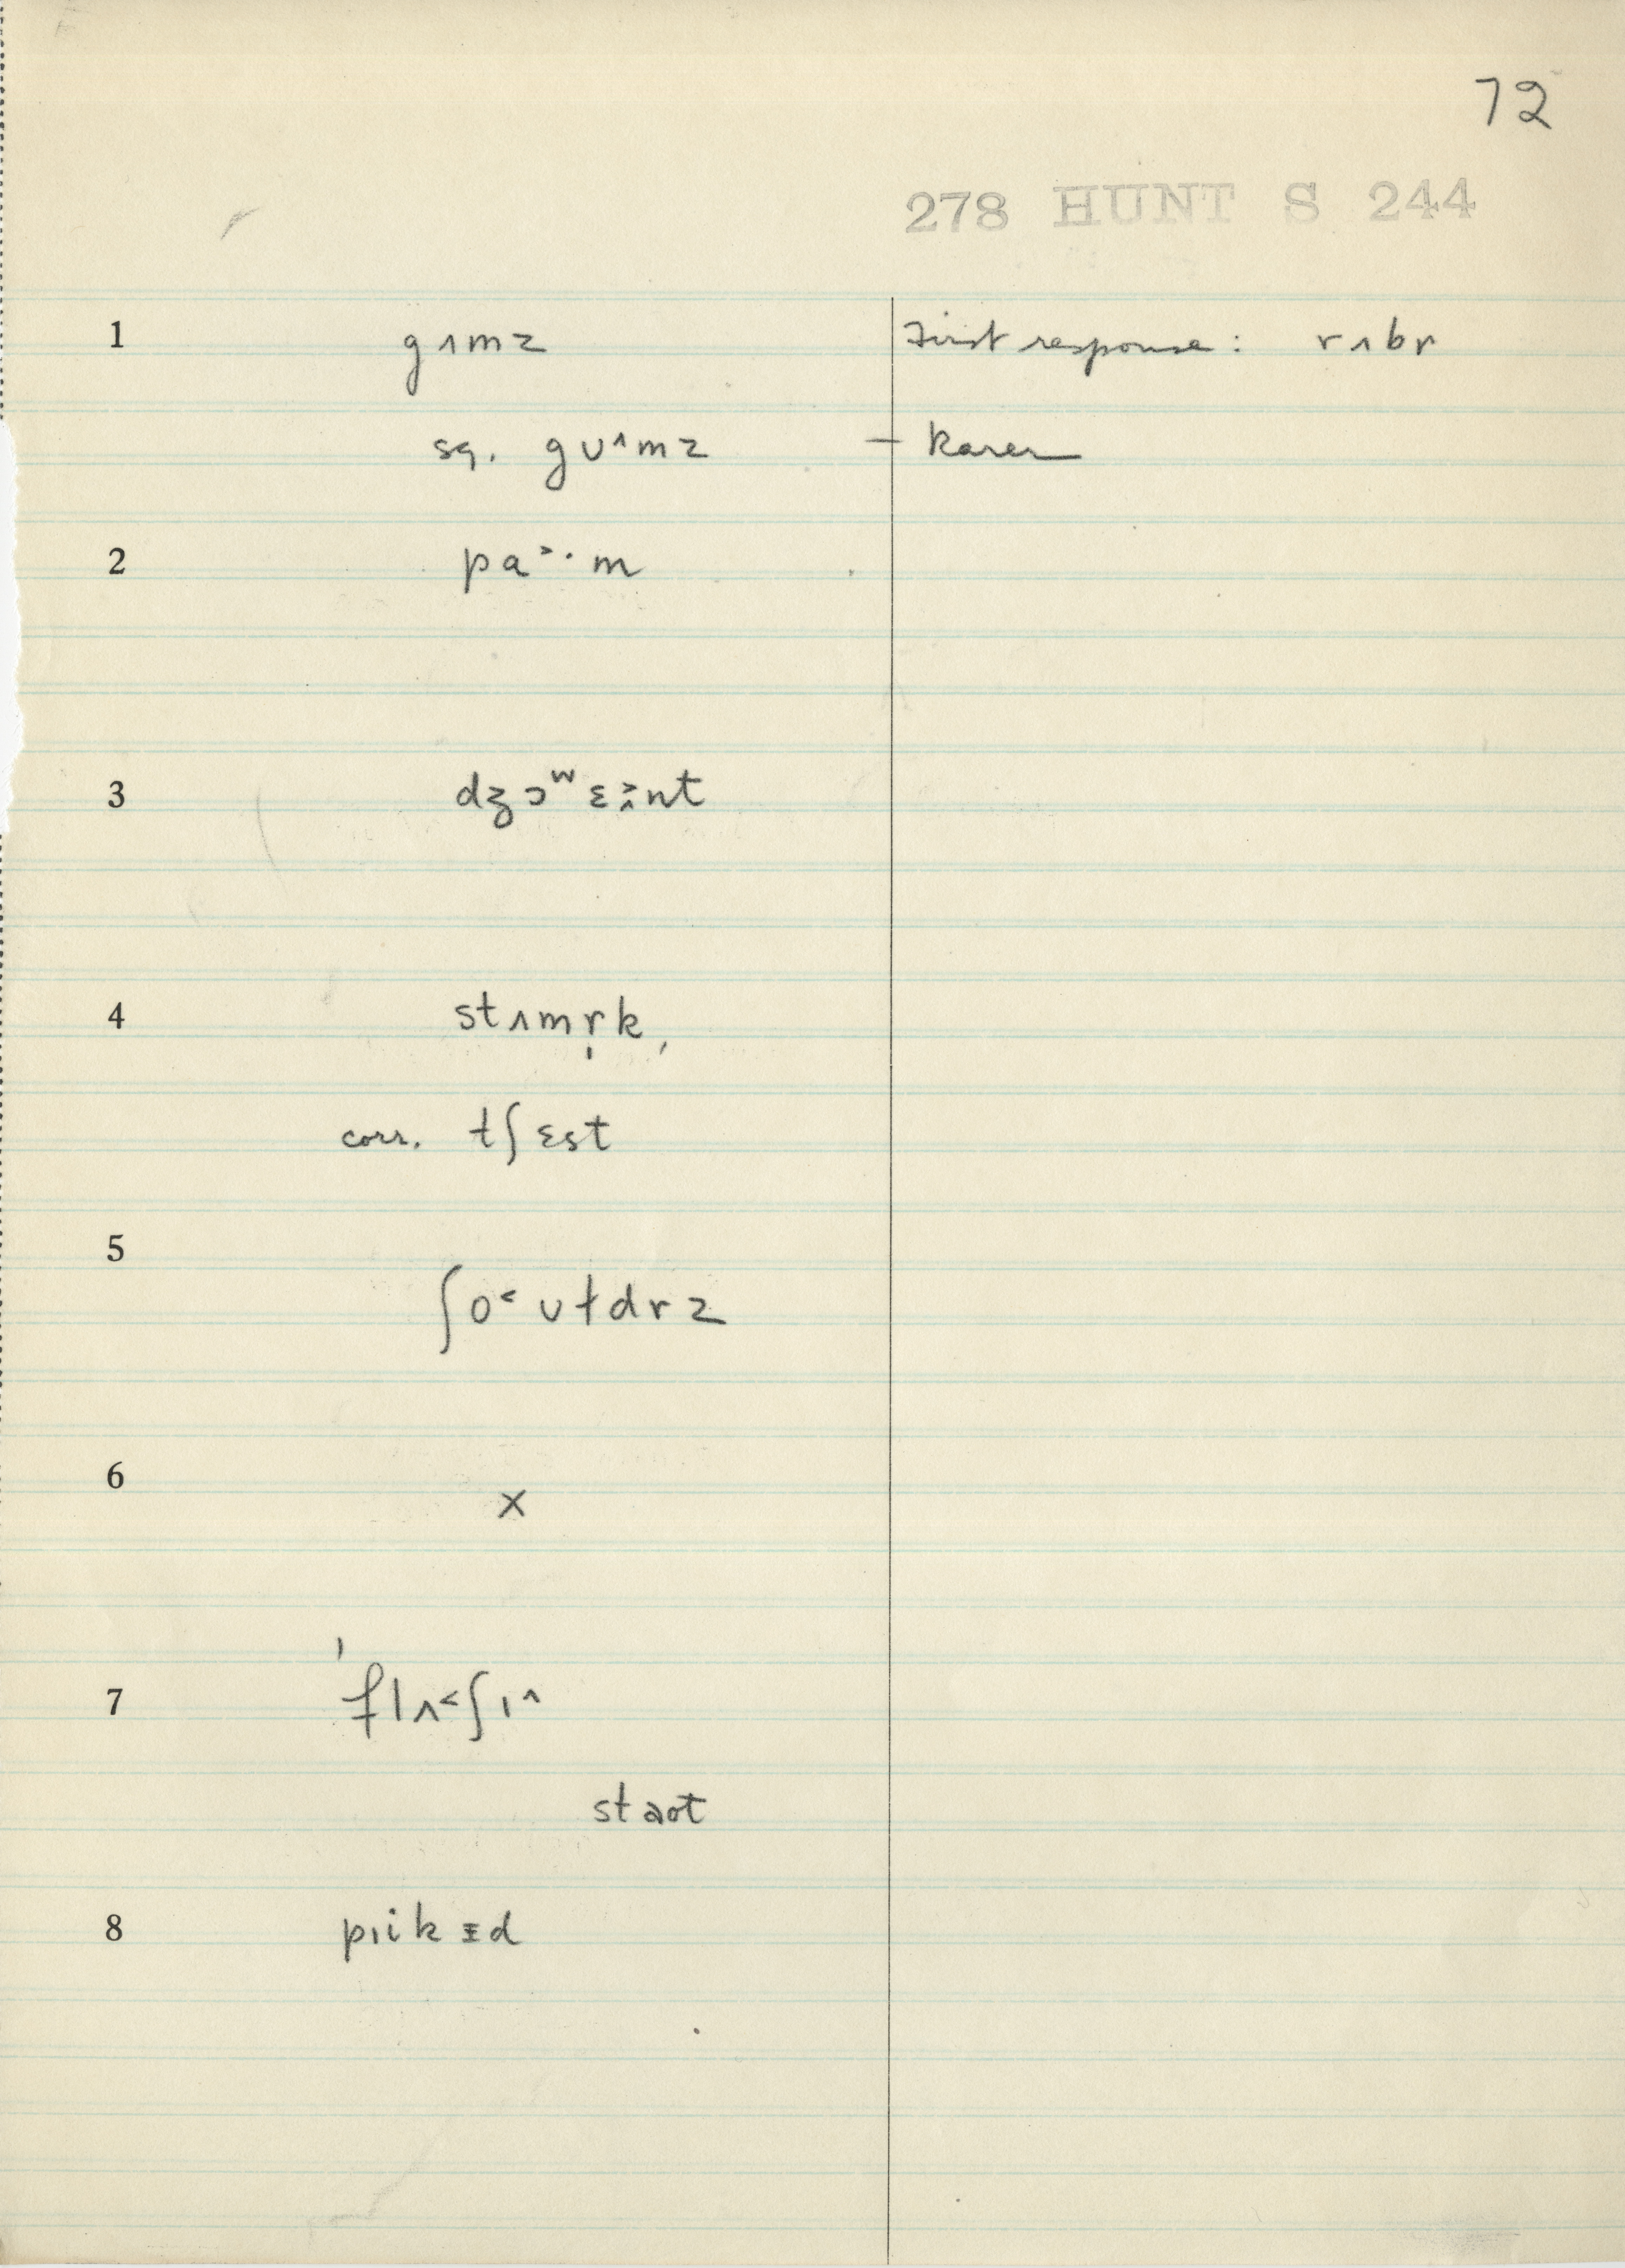 72
278 HUNT S 244
1 gʌmz First response: rʌbr
sq. gʊ^mz – Karen
2 pa˃·m
3 dʒɔʷɛ˃̭nt
4 stʌmr̩k,
corr. tʃɛst
5 ʃo˂ʊɫdrz
6 x
7 ˈflʌ˂ʃɪ^
staot
8 pɪikɪd